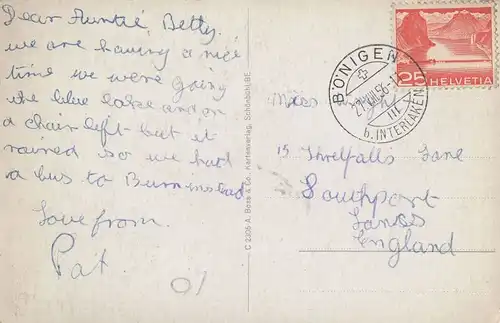 Dear Auntie, Betty.
we are having a nice
time we were going
the blue lake and on
a chair left - but it
rained so we had
a bus to instead
Love from.
Pat
C 2306-A. Boss & Co. Kartenverlag, Schönbühl-BE.
25 HELVETIA
BÖNIGEN
b. INTERLAKEN
Miss
15 Threlfalls Lane
Southport
Lancs
England